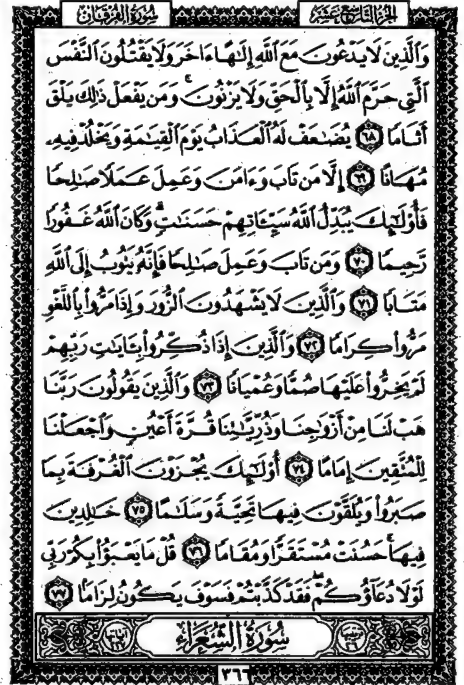 سُورَةُ الفُرْقَانِ الجُزْءُ التَّاسِعَ عَشَرَ
وَٱلَّذِينَ لَا يَدْعُونَ مَعَ ٱللَّهِ إِلَٰهًا ءَاخَرَ وَلَا يَقْتُلُونَ ٱلنَّفْسَ
ٱلَّتِي حَرَّمَ ٱللَّهُ إِلَّا بِٱلْحَقِّ وَلَا يَزْنُونَ ۚ وَمَن يَفْعَلْ ذَٰلِكَ يَلْقَ
أَثَامًا ٦٨ يُضَٰعَفْ لَهُ ٱلْعَذَابُ يَوْمَ ٱلْقِيَٰمَةِ وَيَخْلُدْ فِيهِۦ
مُهَانًا ٦٩ إِلَّا مَن تَابَ وَءَامَنَ وَعَمِلَ عَمَلًا صَٰلِحًا
فَأُوْلَٰٓئِكَ يُبَدِّلُ ٱللَّهُ سَيِّـَٔاتِهِمْ حَسَنَٰتٍ ۗ وَكَانَ ٱللَّهُ غَفُورًا
رَّحِيمًا ٧٠ وَمَن تَابَ وَعَمِلَ صَٰلِحًا فَإِنَّهُۥ يَتُوبُ إِلَى ٱللَّهِ
مَتَابًا ٧١ وَٱلَّذِينَ لَا يَشْهَدُونَ ٱلزُّورَ وَإِذَا مَرُّواْ بِٱللَّغْوِ
مَرُّواْ كِرَامًا ٧٢ وَٱلَّذِينَ إِذَا ذُكِّرُواْ بِـَٔايَٰتِ رَبِّهِمْ
لَمْ يَخِرُّواْ عَلَيْهَا صُمًّا وَعُمْيَانًا ٧٣ وَٱلَّذِينَ يَقُولُونَ رَبَّنَا
هَبْ لَنَا مِنْ أَزْوَٰجِنَا وَذُرِّيَّٰتِنَا قُرَّةَ أَعْيُنٍ وَٱجْعَلْنَا
لِلْمُتَّقِينَ إِمَامًا ٧٤ أُوْلَٰٓئِكَ يُجْزَوْنَ ٱلْغُرْفَةَ بِمَا
صَبَرُواْ وَيُلَقَّوْنَ فِيهَا تَحِيَّةً وَسَلَٰمًا ٧٥ خَٰلِدِينَ
فِيهَا ۚ حَسُنَتْ مُسْتَقَرًّا وَمُقَامًا ٧٦ قُلْ مَا يَعْبَؤُاْ بِكُمْ رَبِّي
لَوْلَا دُعَآؤُكُمْ ۖ فَقَدْ كَذَّبْتُمْ فَسَوْفَ يَكُونُ لِزَامًا ٧٧
سُورَةُ الشُّعَرَاءِ
٣٦٦